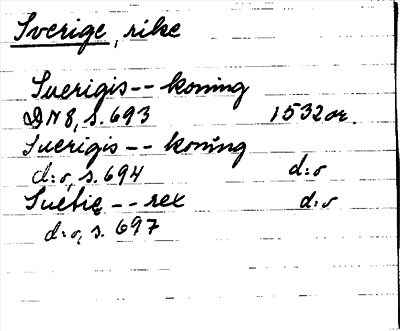 Sverige, rike
Suerigis -- koning
DN 8, s. 693 1532 or.
Suerigis -- koning
d:o, s. 694 d:o
Suetię -- rex d:o
d:o, s. 697